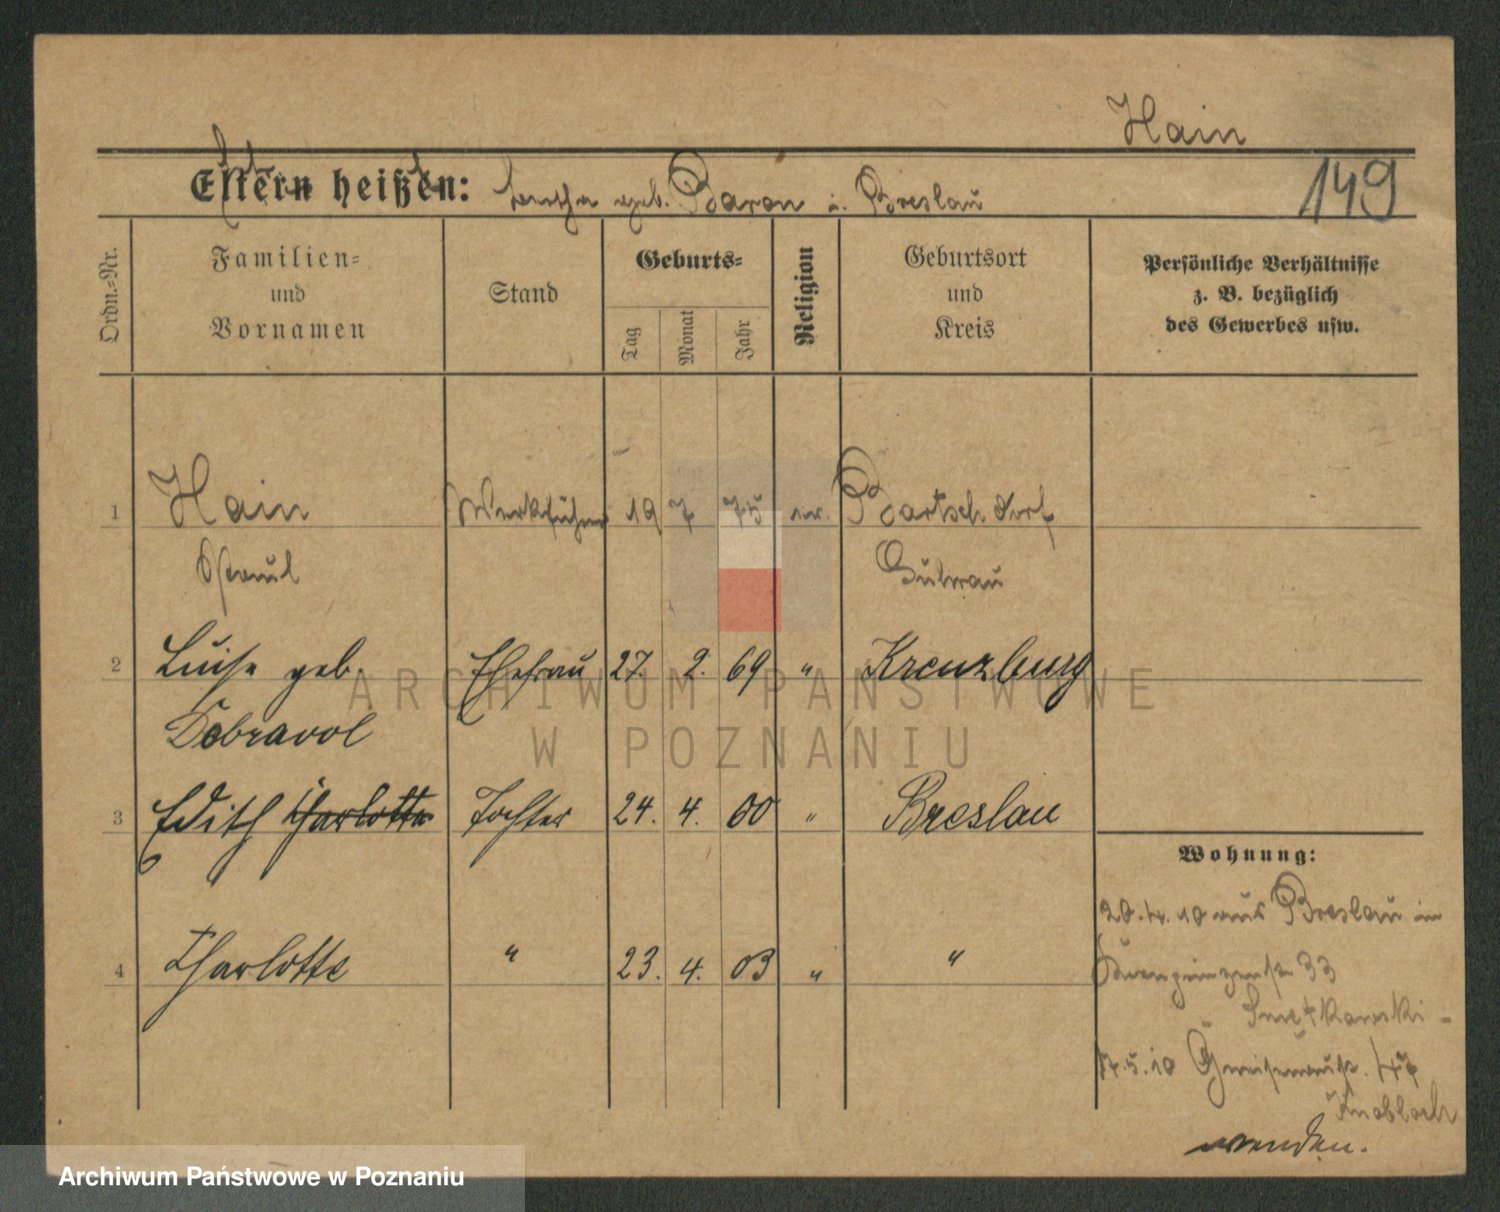 Hain
149
Eltern heißen: geb. Baron i. Breslau
Ordn.-Nr.
Familien-
und
Vornamen
Stand
Geburts-
Tag
Monat
Jahr
Religion
Geburtsort
und
Kreis
Persönliche Verhältnisse
z. B. bezüglich
des Gewerbes usw.
1 Hain Werkführer 19 7 75 ev. Bartschdorf
Paul Guhrau
2 Luise geb. Ehefrau 27. 2. 69 " Kreuzburg
Dobrawol
3 Edith Charlotte Tochter 24. 4. 00 " Breslau
Wohnung:
20.4.10 aus Breslau in
Kronprinzenstr 33
4 Charlotte " 23. 4. 03 " "
Smętkowski -
17.5.10 Gneisenaustr. 47
Knobloch
wenden.
ARCHIWUM PAŃSTWOWE
W POZNANIU
Archiwum Państwowe w Poznaniu